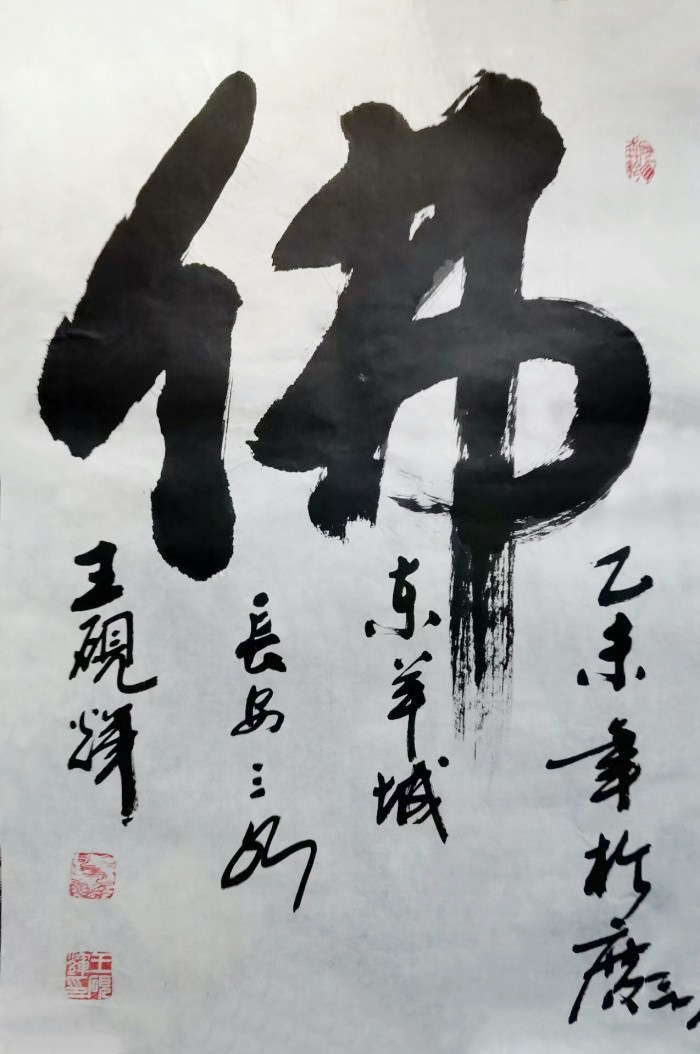 佛
乙未年於廣
东羊城
長安三
王硯輝
王硯輝印